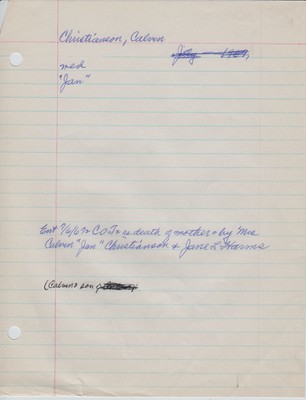 Christianson, Calvin
med
"Jan"
Ent 7/6/62 CO-T re death of mother - by Mrs
Calvin "Jan" Christianson & Jane L Harms
(Calvins son